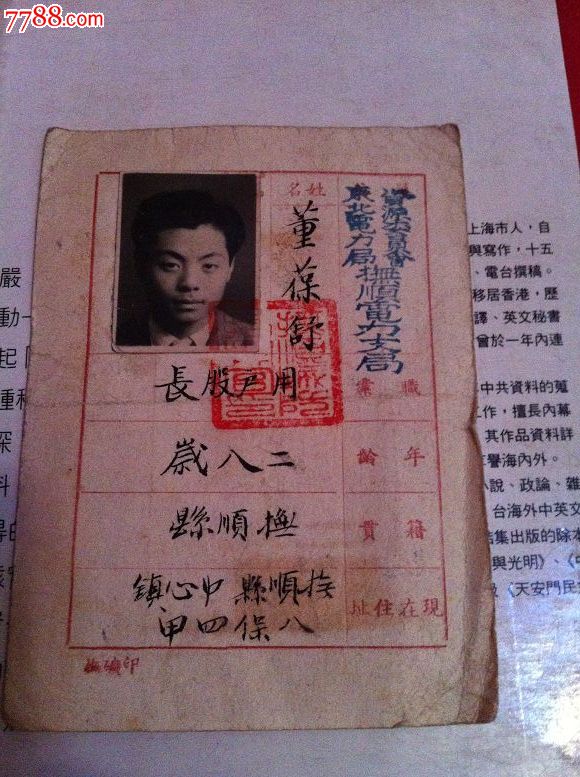 7788.com
中国收藏热线
資源委員會
東北電力局撫順電力支局
姓名
董葆舒
職業
用戶股長
年齡
二八歲
籍貫
撫順縣
現在住址
撫順縣中心鎮
八保四甲
撫礦印
上海市人，自
與寫作，十五
、電台撰稿。
移居香港，歷
譯、英文秘書
曾於一年內連
中共資料的蒐
工作，擅長內幕
其作品資料詳
譽海內外。
小說、政論、雜
台海外中英文
結集出版的除本
與光明》、《
《天安門民
嚴
動
起
種
深
料